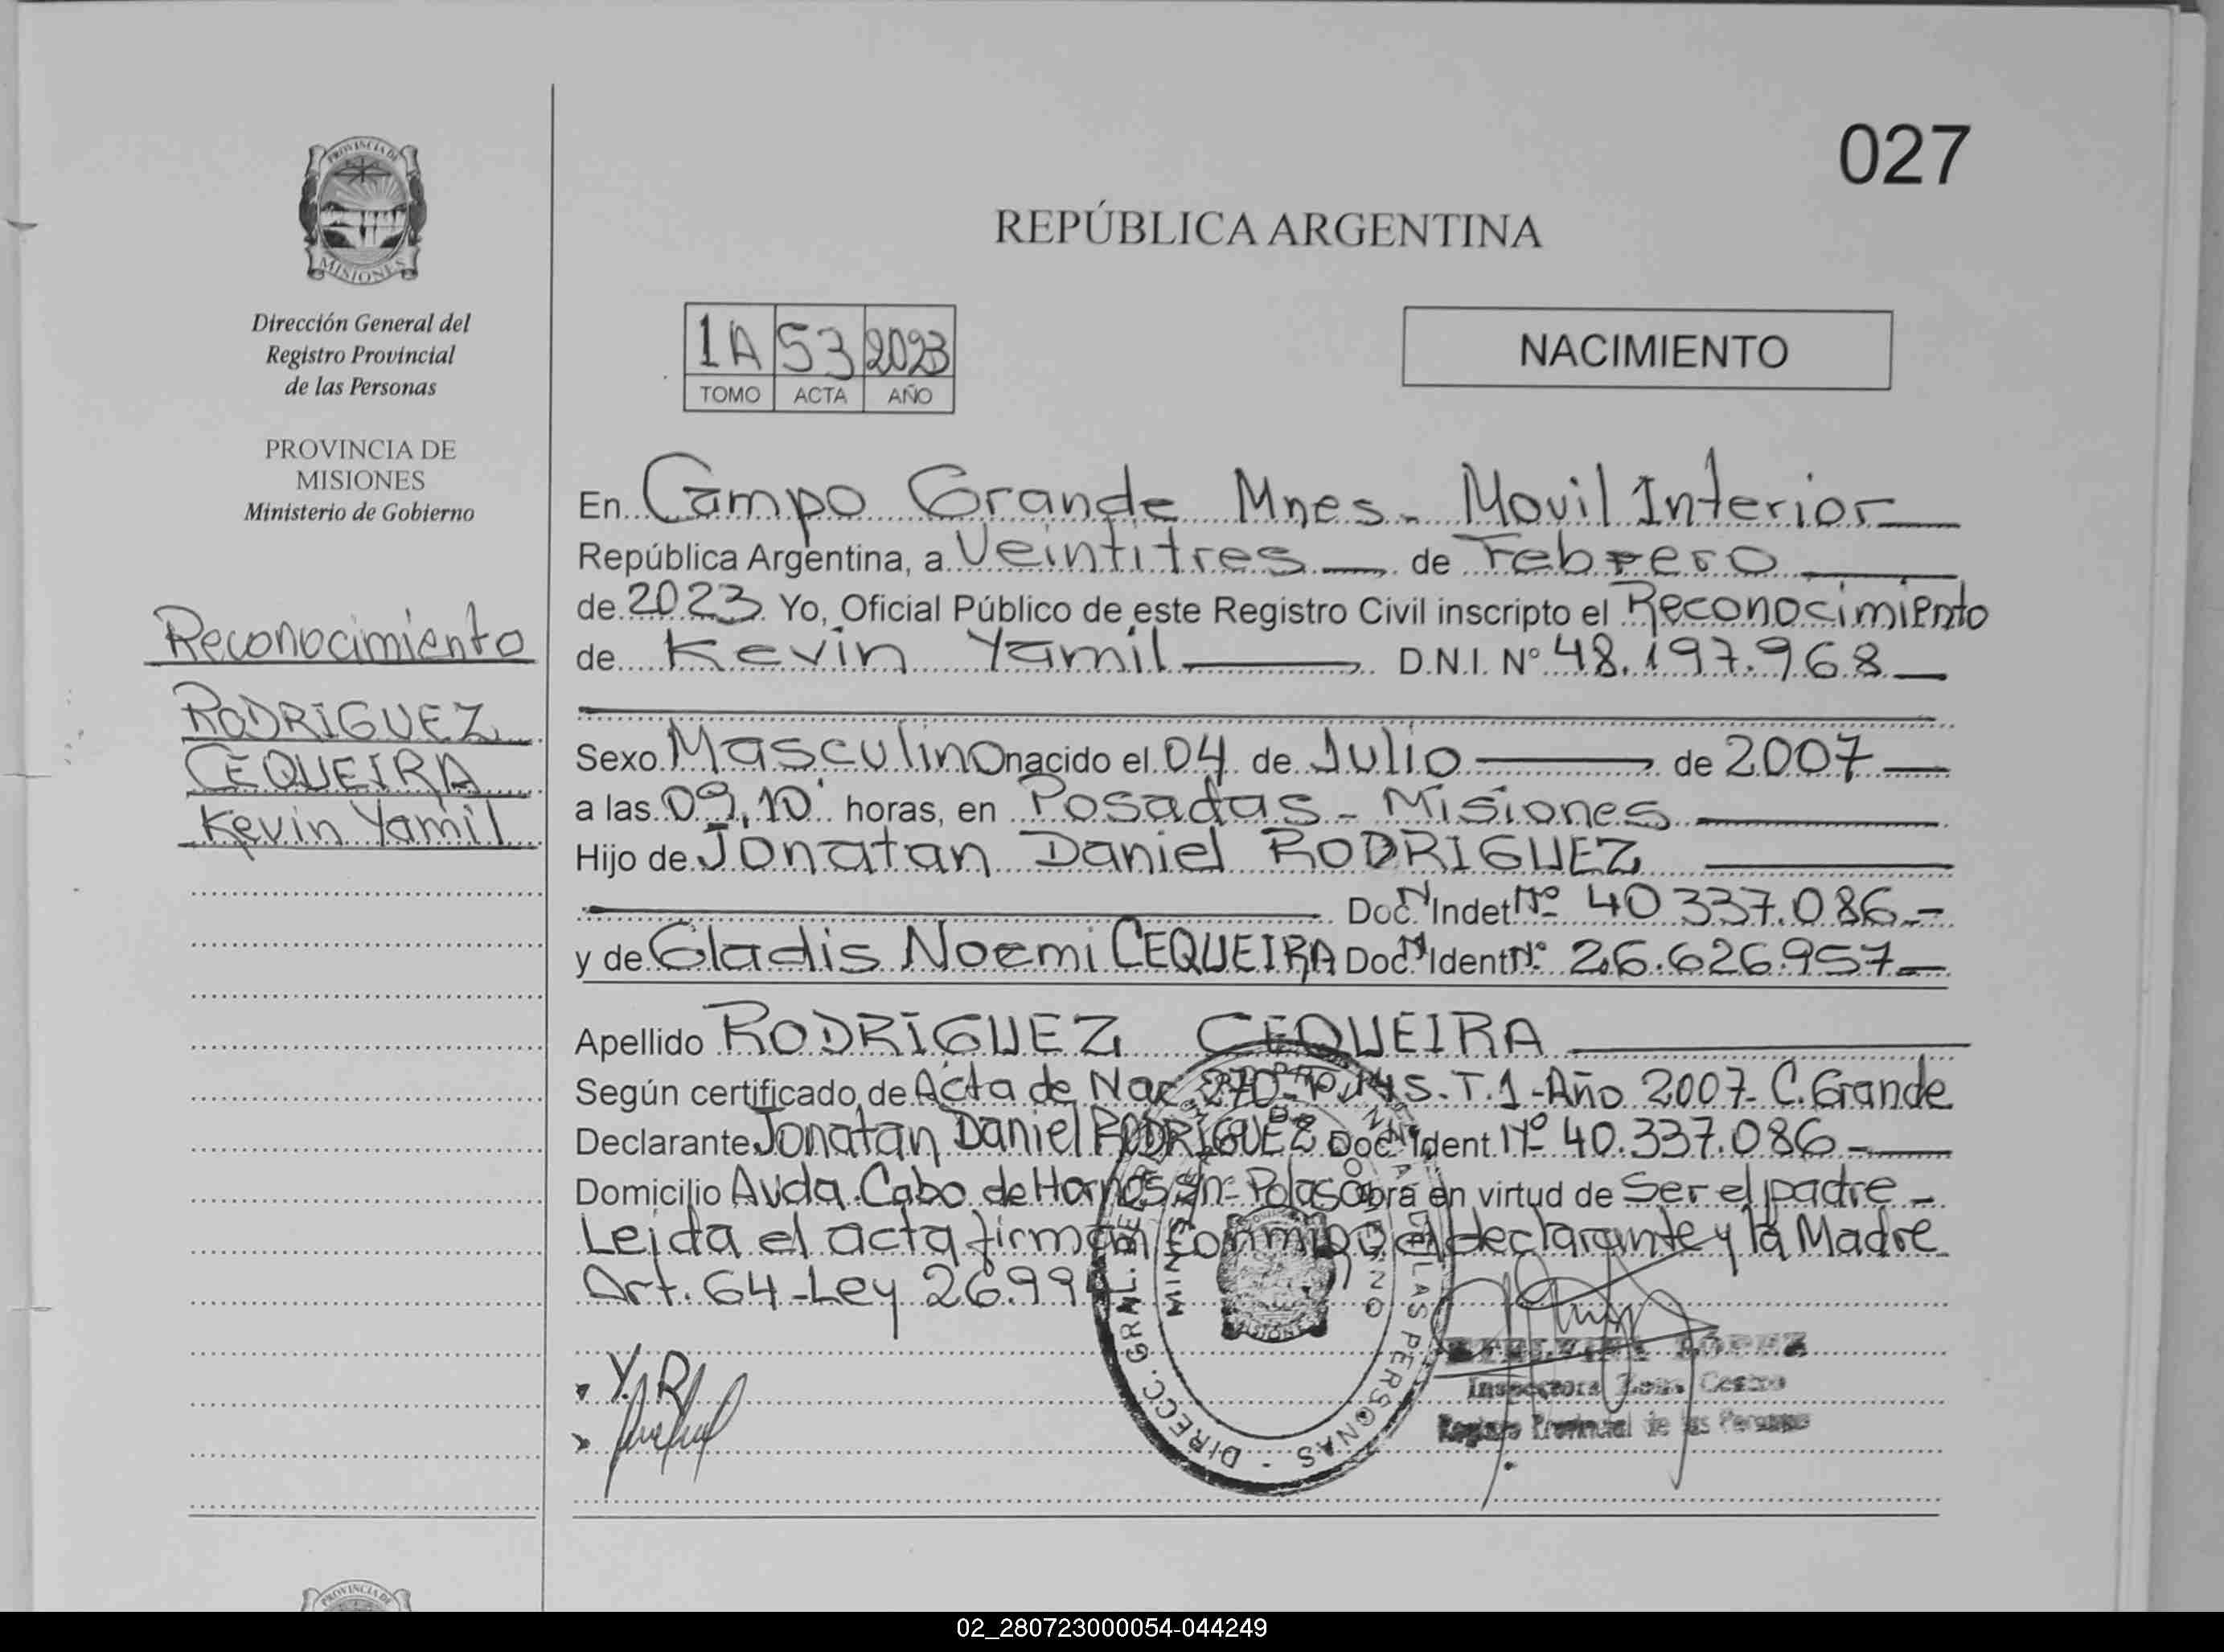 027
REPÚBLICA ARGENTINA
PROVINCIA DE
MISIONES
Dirección General del
Registro Provincial
de las Personas
PROVINCIA DE
MISIONES
Ministerio de Gobierno
Reconocimiento
RODRIGUEZ
CEQUEIRA
Kevin Yamil
1A 53 2023
TOMO ACTA AÑO
NACIMIENTO
En Campo Grande Mnes - Movil Interior
República Argentina, a Veintitres de Febrero
de 2023 Yo, Oficial Público de este Registro Civil inscripto el Reconocimiento
de Kevin Yamil D.N.I. Nº 48.197.968
Sexo Masculino nacido el 04 de Julio de 2007
a las 09,10' horas, en Posadas - Misiones
Hijo de Jonatan Daniel RODRIGUEZ
Doc. Indet Nº 40 337.086.-
y de Gladis Noemi CEQUEIRA Doc. Ident Nº 26.626.957
Apellido RODRIGUEZ CEQUEIRA
Según certificado de Acta de Nac 270- T.1-Año 2007- C. Grande
Declarante Jonatan Daniel RODRIGUEZ Doc. Ident. Nº 40.337.086-
Domicilio Avda. Cabo de Hornos s/n- Pdas Obra en virtud de Ser el padre -
Leida el acta firman conmigo el declarante y la Madre
Art. 64-Ley 26.994
Y.R
DIRECC. GRAL. DE LAS PERSONAS
MISIONES
LOPEZ
Inspectora Zona Centro
Registro Provincial de las Personas
PROVINCIA DE
02_280723000054-044249